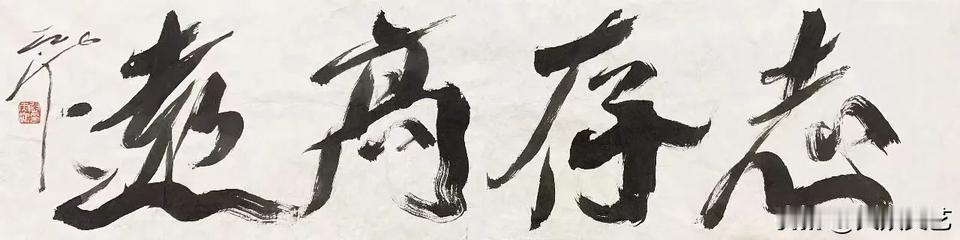 志存高遠